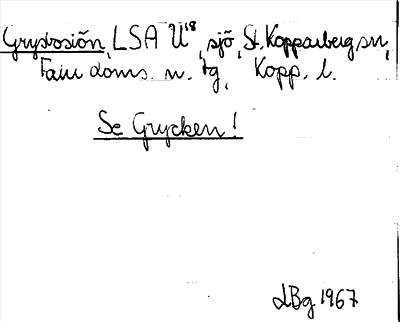 Grycksjön, LSA U¹⁸, sjö, St. Kopparberg sn,
Falu doms. n. tg, Kopp. l.
Se Grycken!
LBg 1967